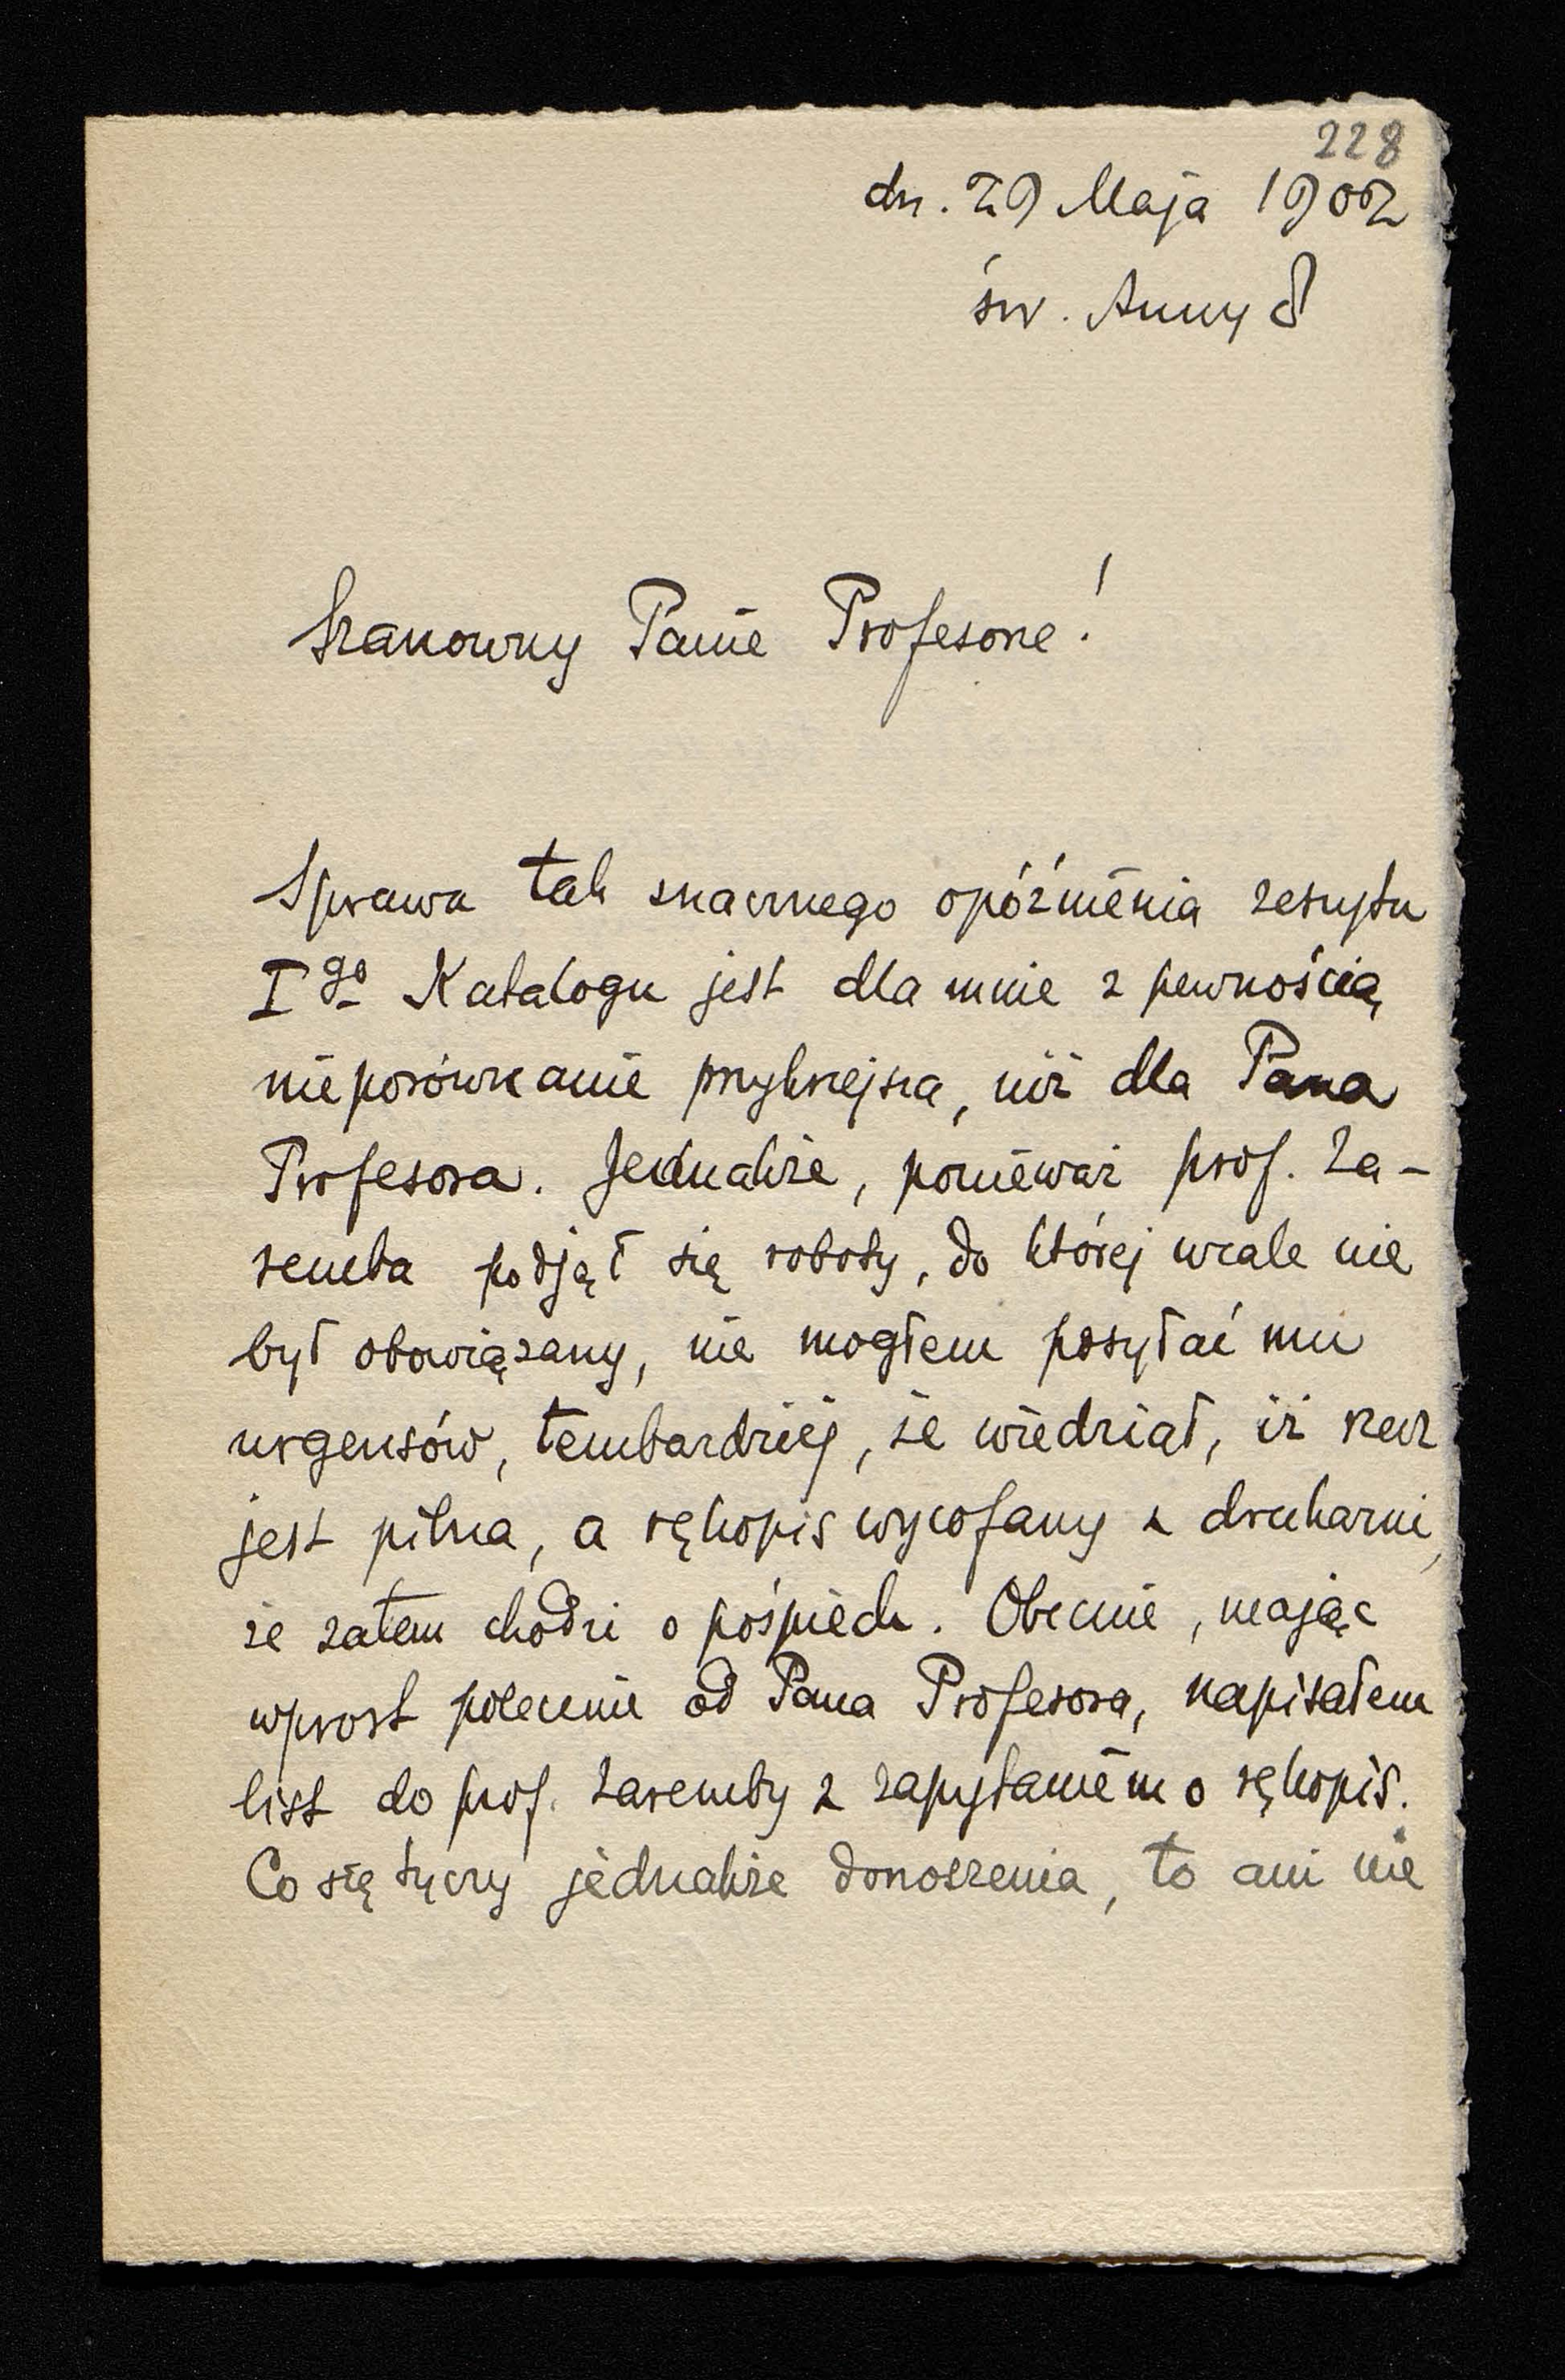 228
dn. 29 Maja 1902
św. Anny 8
Szanowny Panie Profesorze!
Sprawa tak znacznego opóźnienia zeszytu
I go Katalogu jest dla mnie z pewnością
nieporównanie przykrzejsza, niż dla Pana
Profesora. Jednakże, ponieważ prof. Za-
remba podjął się roboty, do której wcale nie
był obowiązany, nie mogłem posyłać mu
urgensów, tembardziej, że wiedział, iż rzecz
jest pilna, a rękopis wycofany z drukarni,
że zatem chodzi o pośpiech. Obecnie, mając
wprost polecenie od Pana Profesora, napisałem
list do prof. Zaremby z zapytaniem o rękopis.
Co się tyczy jednakże donoszenia, to ani nie